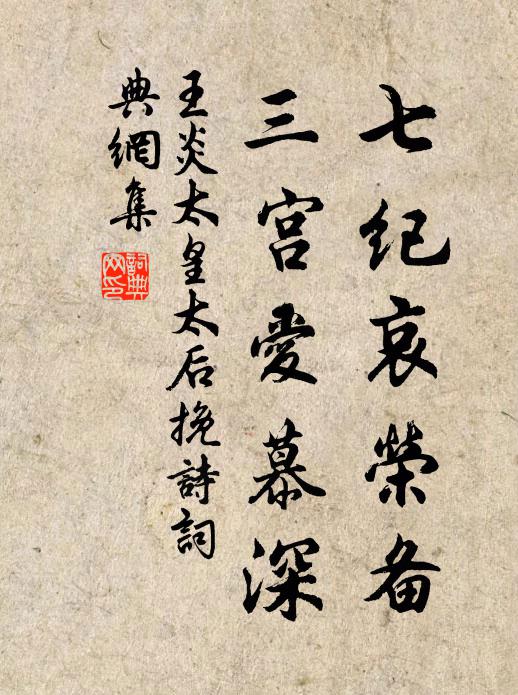 七纪哀榮备
三宫愛慕深
王炎太皇太后挽詩詞
典網集
詞典網印